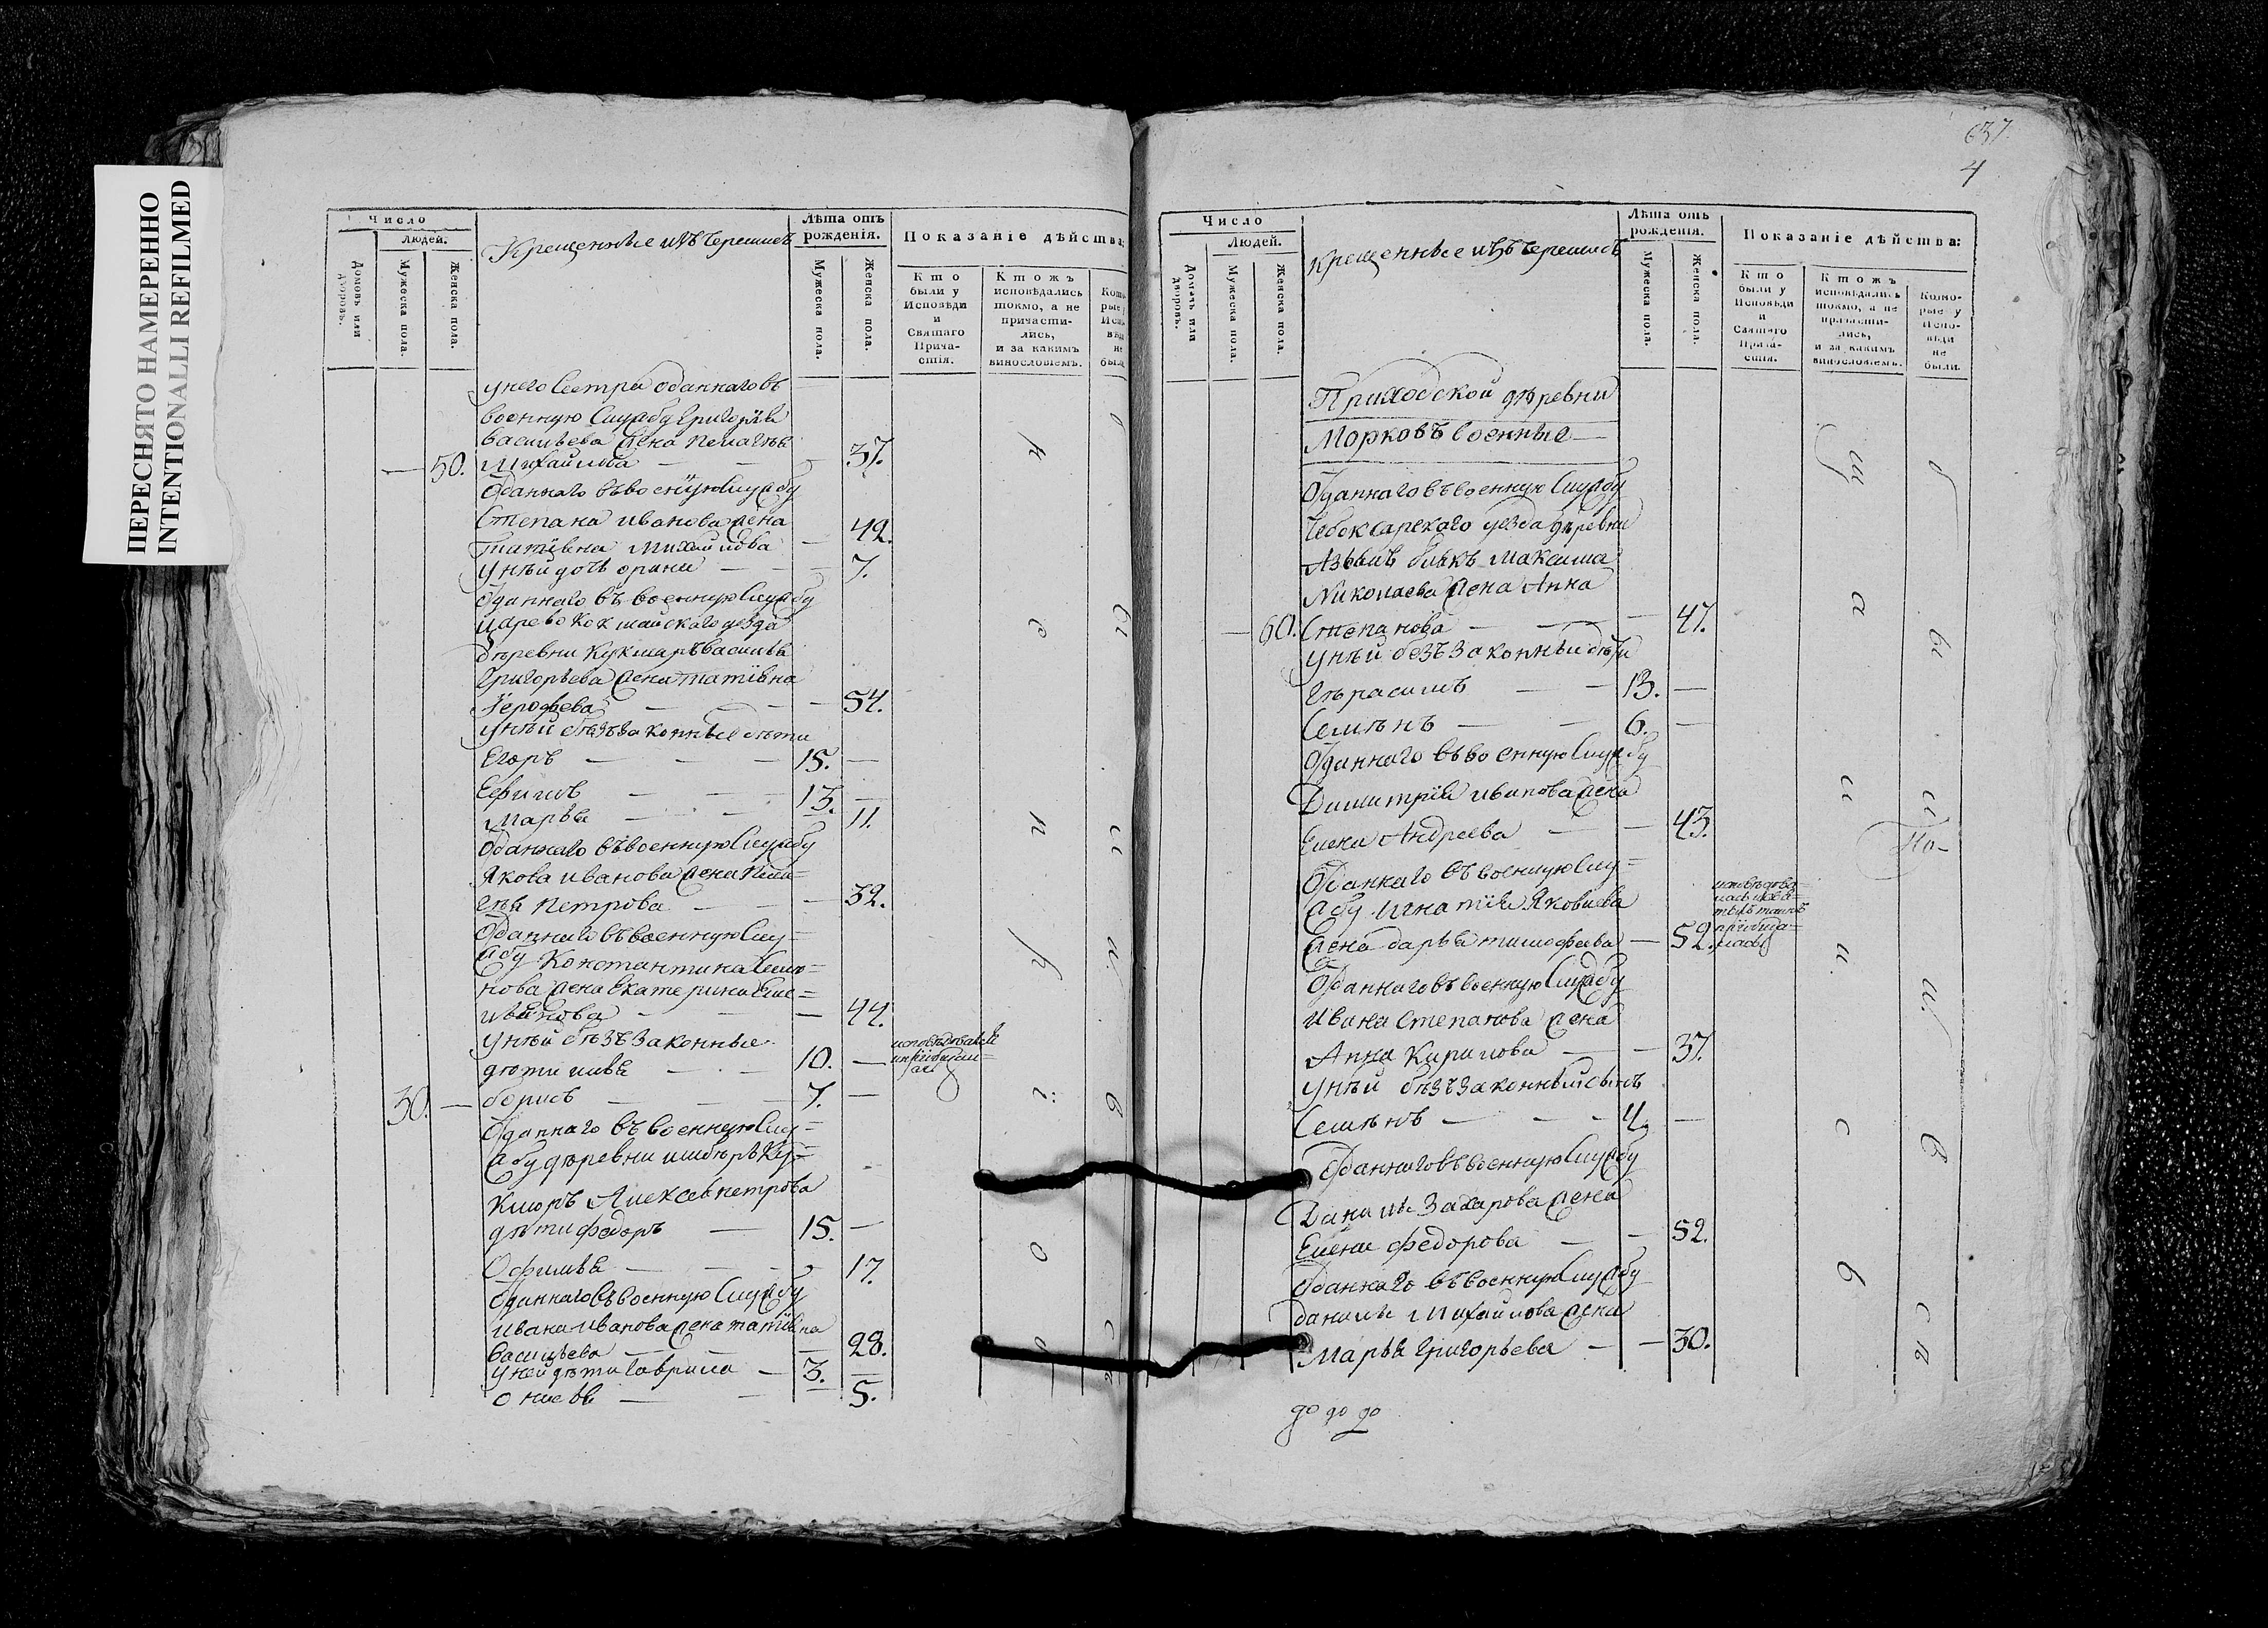 ПЕРЕСНЯТО НАМЕРЕННО
INTENTIONALLI REFILMED
Число
Людей.
Домовъ или дворовъ.
Мужеска пола.
Женска пола.
Крещенные изъ Черемисъ
Лѣта отъ рожденія.
Мужеска пола.
Женска пола.
Показаніе дѣйства:
Кто были у Исповѣди и Святаго Прича-стія.
Ктожъ исповѣдались токмо, а не причасти-лись, и за какимъ винословіемъ.
унего Сестра Отданнаго въ
военную Службу Григорья
Васильева жена Пелагѣя
50. Михайлова 37.
Отданнаго въ военную Службу
Степана Иванова жена
Татіяна Михайлова 42.
унѣй дочь орина 7.
Отданнаго въ военную Службу
Царевококшайскаго уезда
деревни Кукмаръ Василья
Григорьева жена татіяна
Ерофѣева 54.
унѣй безъзаконные дѣти
Егоръ 15.
Ефимъ 13.
Марья 11.
Отданнаго въ военную Службу
Якова Иванова жена Пела=
гѣя Петрова 32.
Отданнаго въ военную Слу=
жбу Константина Семе=
нова жена Екатерина Еме=
льянова 44.
унѣй безъ законные
дѣти илья 10.
30. борисъ 7.
Отданнаго въ военную Слу=
жбу деревни
Алексея петрова
дѣти федоръ 15.
Офимья 17.
Отданнаго въ военную Службу
ивана иванова жена татіяна
Васильева 28.
уней дѣти гаврила 3.
5.
637.
4
Число
Людей.
Домовъ или дворовъ.
Мужеска пола.
Женска пола.
крещенные изъ Черемисъ
Лѣта отъ рожденія.
Мужеска пола.
Женска пола.
Показаніе дѣйства:
Кто были у Исповѣди и Святаго Прича-стія.
Ктожъ исповѣдались токмо, а не причасти-лись, и за какимъ винословіемъ.
Кото-рые у Испо-вѣди не были.
Приходской деревни
Морковъ военные
Отданнаго въ военную Службу
Чебоксарскаго уезда деревни
Максима
Николаева жена Анна
60. Степанова 47.
унѣй безъзаконныи дѣти
Герасимъ 13.
Семенъ 6.
Отданнаго въ военную Службу
Димитрія иванова жена
Елена Андреева 43.
Отданнаго въ военную Слу=
жбу Игнатія Яковлева
жена дарья тимофеева 52.
Отданнаго въ военную Службу
ивана Степанова жена
Анна Кирилова 37.
унѣй безъзаконный сынъ
Семенъ 4.
Отданнаго въ военную Службу
Данилы Захарова жена
Елена федорова 52.
Отданнаго въ военную Службу
данилы Михайлова жена
Марья Григорьева 30.
до до до